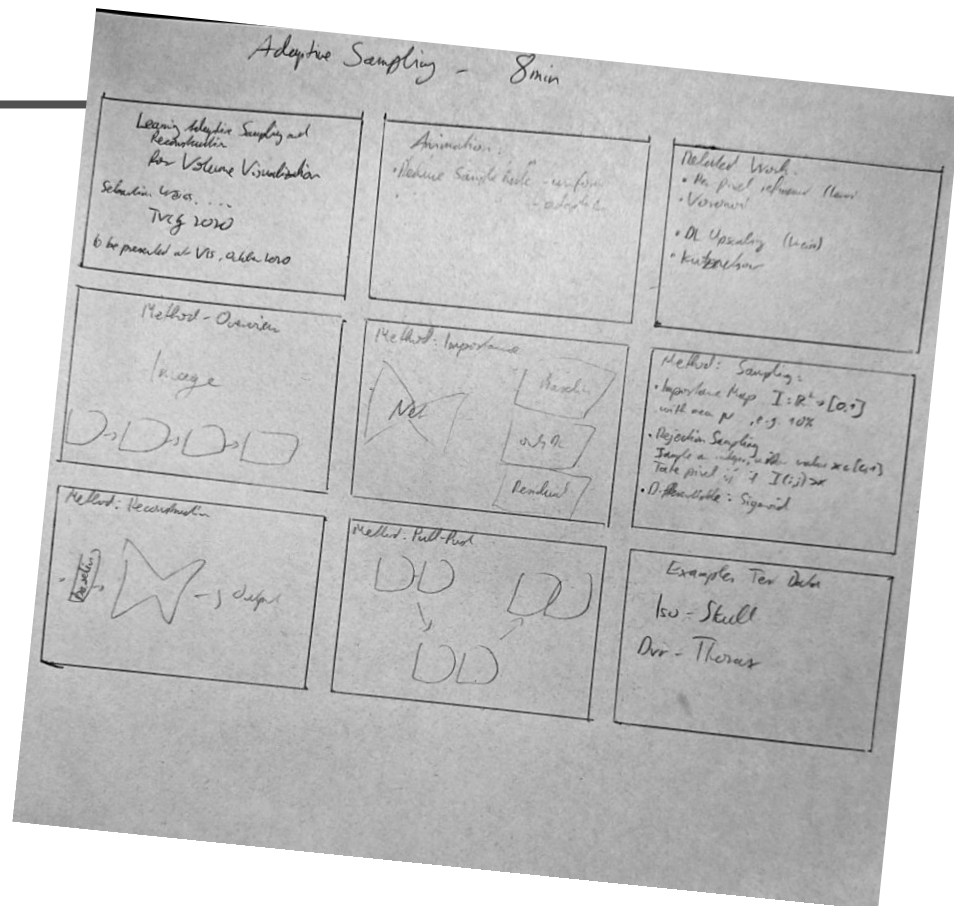 Adaptive Sampling - 8min
Learning Adaptive Sampling and
Reconstruction
for Volume Visualization
Sebastian Weiss, ....
TVCG 2020
to be presented at VIS, October 2020
Animation:
• Reduce Sample Rate - uniform
- adaptive
Related Work:
• Per pixel
• Voronoi
• DL Upscaling
Method - Overview
Image
Method: Importance
Net
Baseline
Residual
Method: Sampling:
• Importance Map I: ℝ² → [0,1]
with mean μ, e.g. 10%
• Rejection Sampling
Sample a value x ∈ [0,1]
Take pixel if I(i,j) > x
• Differentiable: Sigmoid
Method: Reconstruction
Baseline
→ output
Method: Pull-Push
Examples Test Data
Iso - Skull
Dvr - Thorax